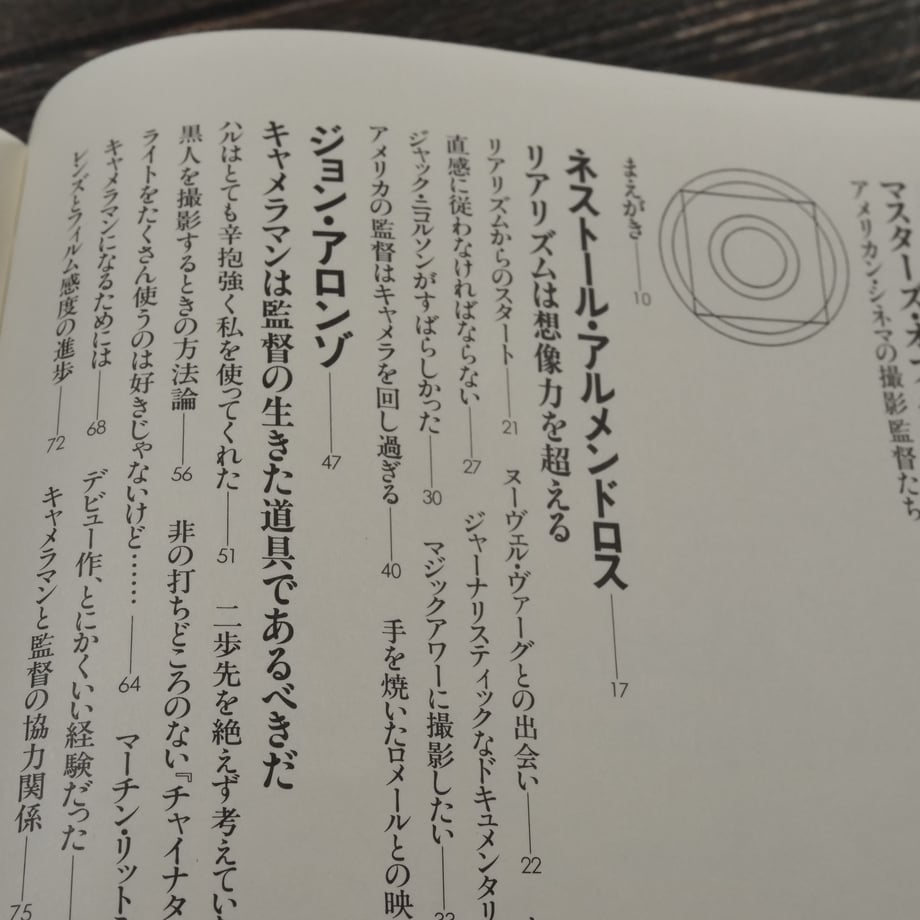 マスターズ・オブ
アメリカン・シネマの撮影監督たち
まえがき——10
ネストール・アルメンドロス——17
リアリズムは想像力を超える
リアリズムからのスタート——21 ヌーヴェル・ヴァーグとの出会い——22
直感に従わなければならない——27 ジャーナリスティックなドキュメンタリ
ジャック・ニコルソンがすばらしかった——30 マジックアワーに撮影したい——33
アメリカの監督はキャメラを回し過ぎる——40 手を焼いたロメールとの映
ジョン・アロンゾ——47
キャメラマンは監督の生きた道具であるべきだ
ハルはとても辛抱強く私を使ってくれた——51 二歩先を絶えず考えてい
黒人を撮影するときの方法論——56 非の打ちどころのない『チャイナタ
ライトをたくさん使うのは好きじゃないけど……——64 マーチン・リット
キャメラマンになるためには——68 デビュー作、とにかくいい経験だった——
レンズとフィルム感度の進歩——72 キャメラマンと監督の協力関係——75